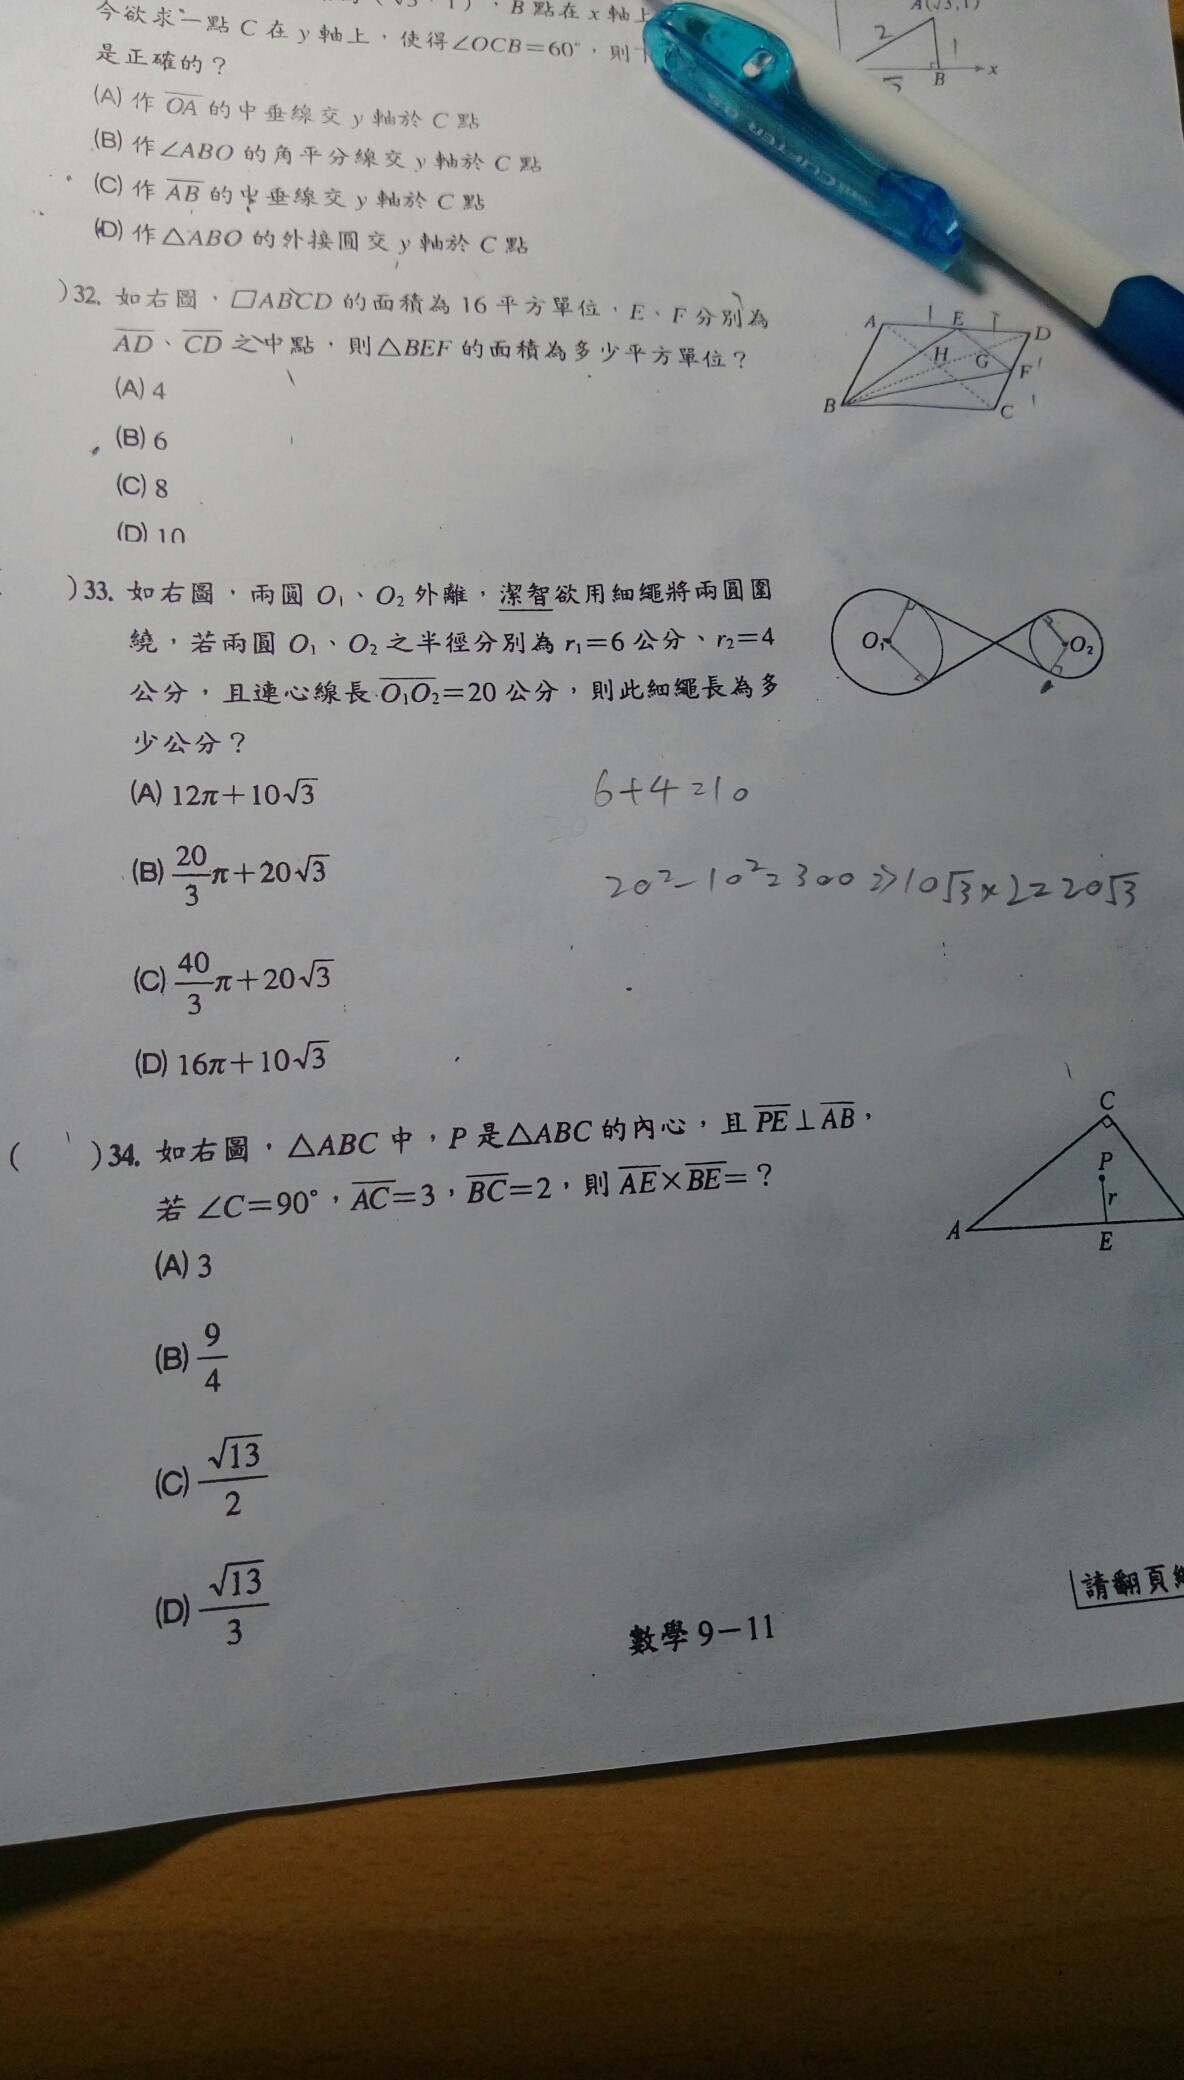 B 點在 x 軸上
今欲求一點 C 在 y 軸上，使得∠OCB＝60°，則
是正確的？
(A) 作 OA 的中垂線交 y 軸於 C 點
(B) 作∠ABO 的角平分線交 y 軸於 C 點
(C) 作 AB 的中垂線交 y 軸於 C 點
(D) 作△ABO 的外接圓交 y 軸於 C 點
A(√3,1)
2
1
B
x
)32. 如右圖，▱ABCD 的面積為 16 平方單位，E、F 分別為
AD、CD 之中點，則△BEF 的面積為多少平方單位？
(A) 4
(B) 6
(C) 8
(D) 10
A 1 E 1 D
H G F 1
B C 1
)33. 如右圖，兩圓 O₁、O₂ 外離，潔智欲用細繩將兩圓圍
繞，若兩圓 O₁、O₂ 之半徑分別為 r₁＝6 公分、r₂＝4
公分，且連心線長 O₁O₂＝20 公分，則此細繩長為多
少公分？
(A) 12π＋10√3
(B) 20/3 π＋20√3
(C) 40/3 π＋20√3
(D) 16π＋10√3
O₁ O₂
6+4=10
20²-10²=300⇒10√3×2=20√3
( )34. 如右圖，△ABC 中，P 是△ABC 的內心，且 PE⊥AB，
若 ∠C＝90°，AC＝3，BC＝2，則 AE×BE＝？
(A) 3
(B) 9/4
(C) √13/2
(D) √13/3
C
P
r
A
E
請翻頁
數學 9－11